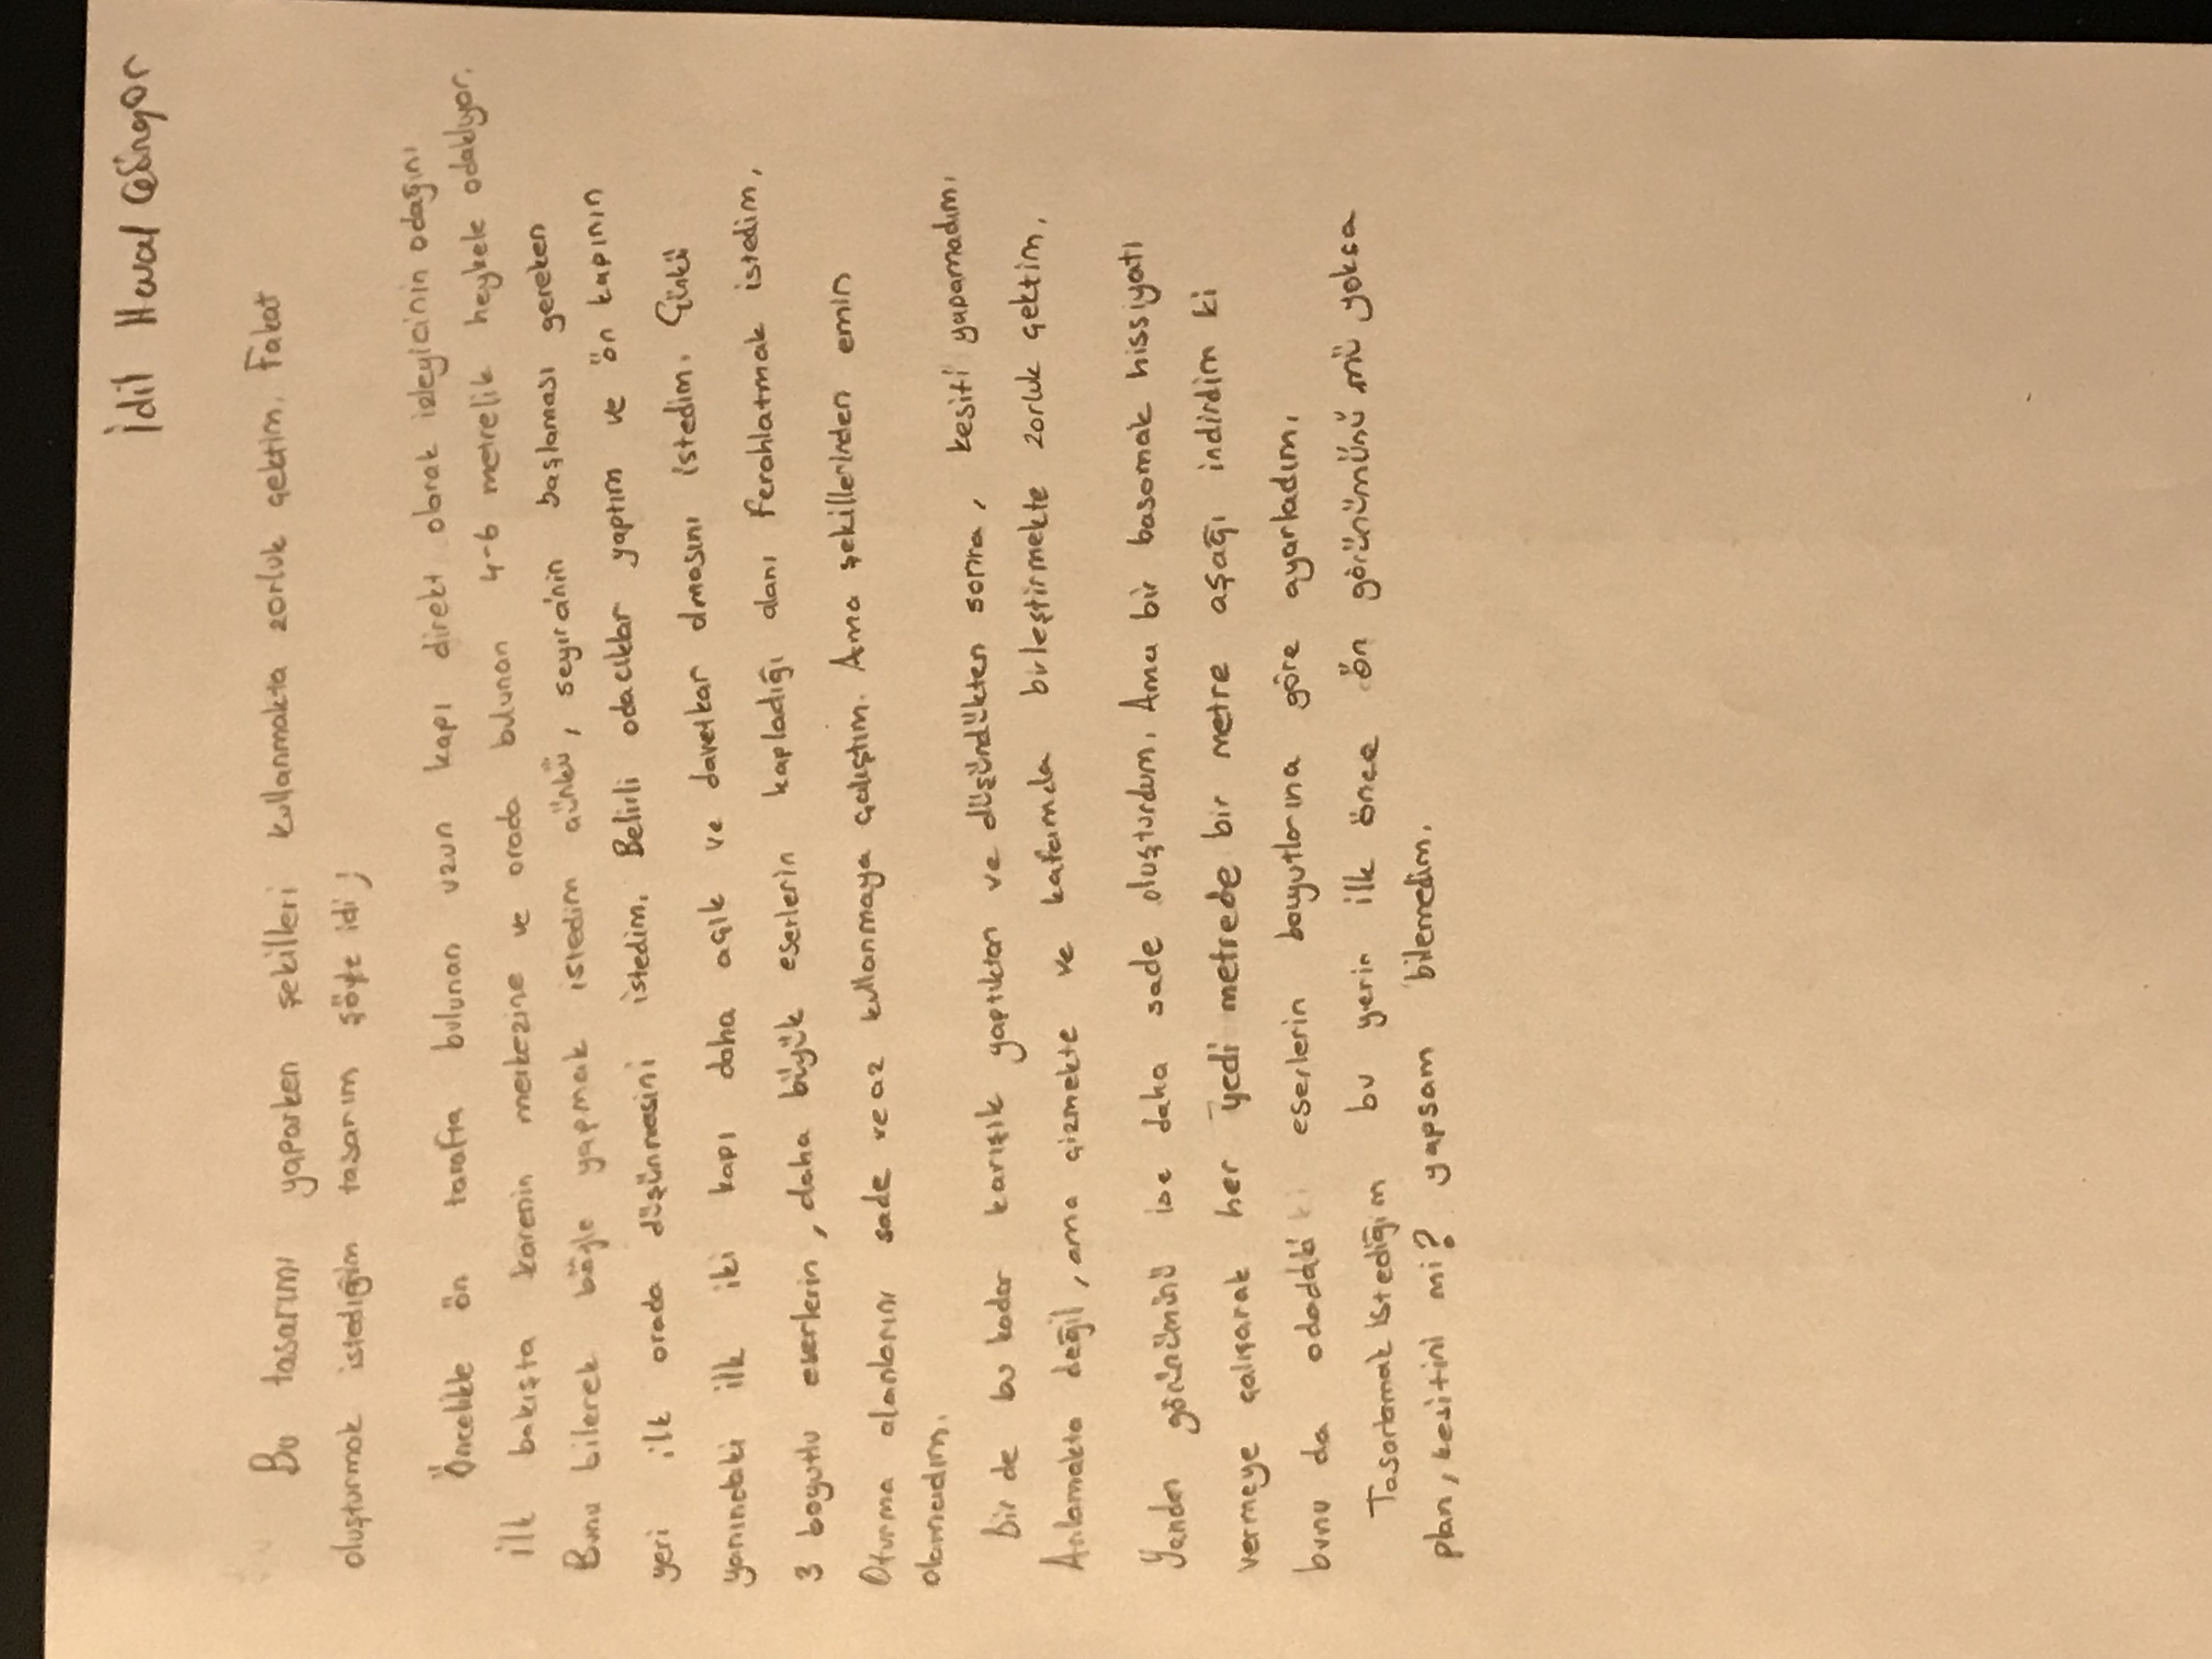 İdil Haval Güngör
Bu tasarımı yaparken şekilleri kullanmakta zorluk çektim. Fakat
oluşturmak istediğim tasarım şöyle idi;
Öncelikle ön tarafta bulunan uzun kapı direkt olarak izleyicinin odağını
ilk bakışta karenin merkezine ve orada bulunan 4-6 metrelik heykele odaklıyor.
Bunu bilerek böyle yapmak istedim çünkü, seyircinin başlaması gereken
yeri ilk orada düşünmesini istedim. Belirli odacıklar yaptım ve ön kapının
yanındaki ilk iki kapı daha açık ve davetkar olmasını istedim. Çünkü
3 boyutlu eserlerin, daha büyük eserlerin kapladığı alanı ferahlatmak istedim,
Oturma alanlarını sade ve az kullanmaya çalıştım. Ama şekillerinden emin
olamadım.
Bir de bu kadar karışık yaptıktan ve düşündükten sonra, kesiti yapamadım.
Anlamakta değil, ama çizmekte ve kafamda birleştirmekte zorluk çektim.
Yandan görünümünü ise daha sade oluşturdum. Ama bir basamak hissiyatı
vermeye çalışarak her yedi metrede bir metre aşağı indirdim ki
bunu da odadaki eserlerin boyutlarına göre ayarladım.
Tasarlamak istediğim bu yerin ilk önce ön görünümünü mü yoksa
plan, kesitini mi? yapsam bilemedim.